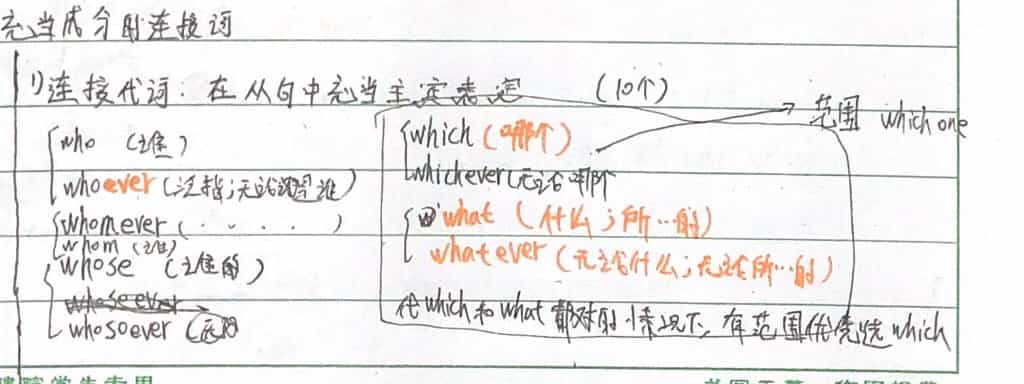 充当成分的连接词
1)连接代词：在从句中充当主宾表定 (10个)
who (谁)
whoever (泛指;无论谁)
whomever (. . . . . )
whom (谁)
whose (谁的)
whoseever
whosoever (无论
which (哪个)
whichever(无论哪个
what (什么;所…的)
whatever (无论什么;无论所…的)
在which和what都对的情况下,有范围优先选which
范围 which one